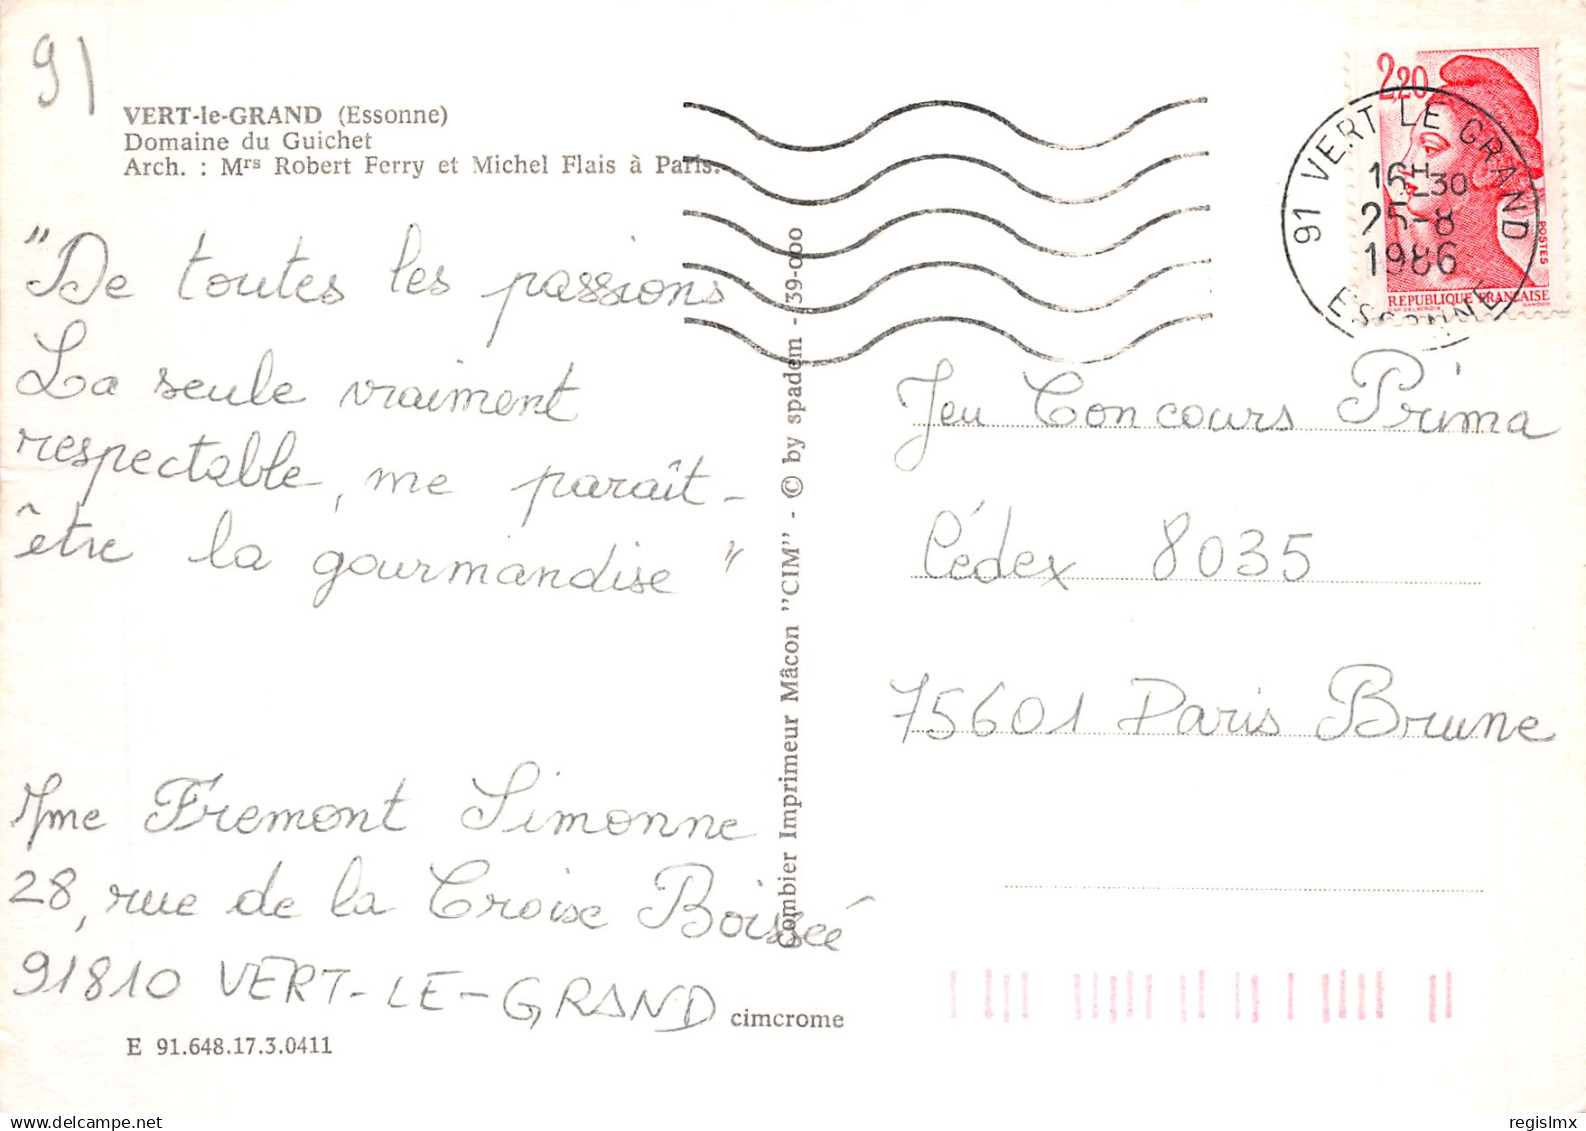 91
VERT-le-GRAND (Essonne)
Domaine du Guichet
Arch. : Mrs Robert Ferry et Michel Flais à Paris.
"De toutes les passions
La seule vraiment
respectable, me paraît-
être la gourmandise"
Mme Fremont Simonne
28, rue de la Croise Boissée
91810 VERT-LE-GRAND
cimcrome
E 91.648.17.3.0411
Combier Imprimeur Mâcon "CIM" - © by spadem - 39-000
2,20
POSTES
REPUBLIQUE FRANÇAISE
91 VERT LE GRAND
16H30
25-8
1986
ESSONNE
Jeu Concours Prima
Cédex 8035
75601 Paris Brune
regislmx